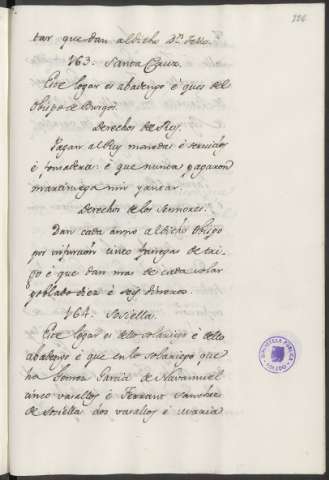 226
tar que dan al dicho Dn. Tello.
163. Santa Cruz.
Este logar es abadengo è ques del
Obispo de Burgos.
Derechos del Rey.
Pagan al Rey moneda è servicios
è fonsadera è que nunca pagaron
martiniega nin yantar.
Derechos de los Sennores.
Dan cada anno al dicho Obispo
por infurcion cinco fanegas de tri-
go è que dan mas de cada solar
poblado diez è seys dineros.
164. Sosiella.
Este logar es dello solariego è dello
abadengo è que en lo solariego que
ha Gomez Garcia de Navamuel
cinco vasallos è Ferrant Sanchez
de Sosiella dos vasallos è Maria
BIBLIOTECA PUBLICA
TOLEDO